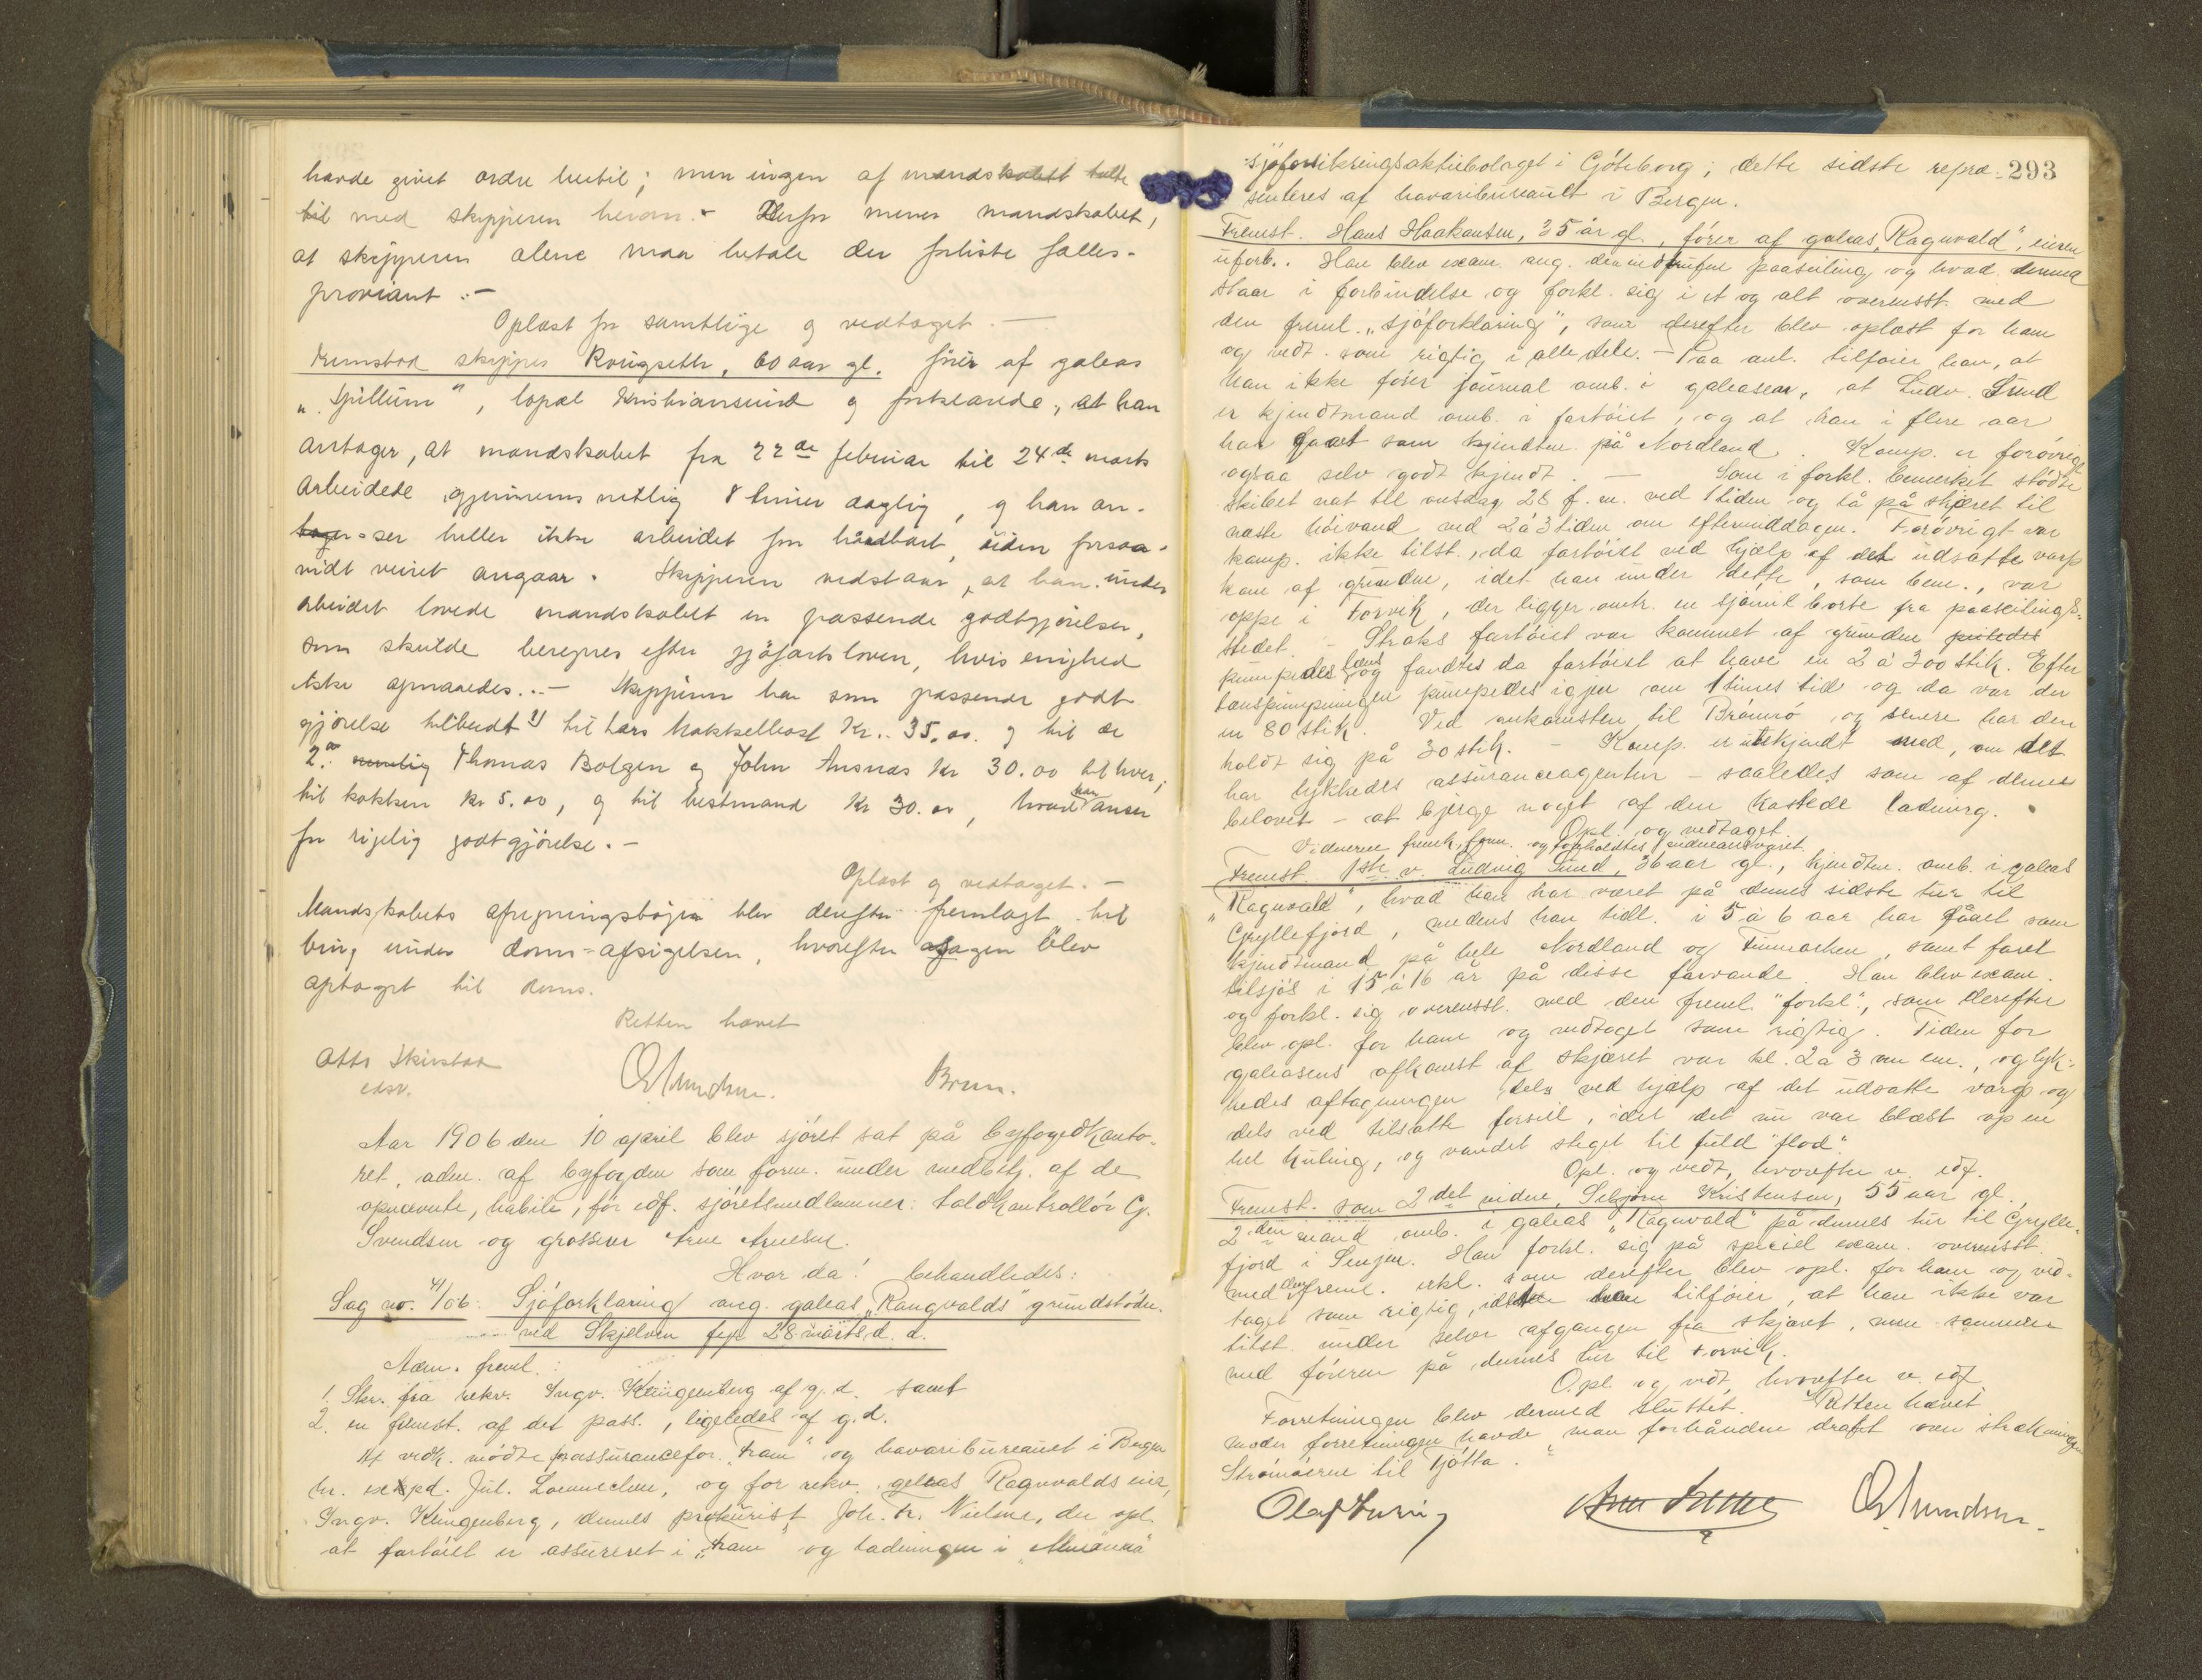 havde givet ordre hertil; men ingen af mandskabet talte
til med skipperen herom. - Derfor mener mandskabet,
at skipperen alene maa betale den forliste fælles-
proviant. -
Oplæst for samtlige og vedtaget. -
Fremstod skipper Roigseth, 60 aar gl. fører af galeas
"Spillum", lopal Kristiansund og forklarede, at han
antager, at mandskabet fra 22de februar til 24de marts
arbeidede gjennemsnitlig 8 timer daglig, og han an-
ser heller ikke arbeidet for haardbart, siden forsaa-
vidt veiret angaar. Skipperen vedstaar, at han under
arbeidet lovede mandskabet en passende godtgjørelse,
som skulde beregnes efter sjøfartsloven, hvis enighed
ikke opnaaedes. .- Skipperen har som passende godt
gjørelse tilbudt til Lars Kr. 35.00 og til de
2de Thomas Bolgen og John Ansnæs Kr 30.00 til hver,
til kokken Kr 5.00, og til bestmand Kr 30.00, hvad han anser
for rigelig godtgjørelse. -
Oplæst og vedtaget. -
Mandskabets afregningsbøger blev derefter fremlagt til
brug under doms-afsigelsen, hvorefter sagen blev
optaget til doms.
Retten hævet
Otto Skirstad
edsv.
O. Amundsen. Brun.
Aar 1906 den 10 april blev sjøret sat på byfogedkonto-
ret, adm. af byfogden som form. under medbetj. af de
opnævnte, habile, før edf. sjøretsmedlemmer: toldkontrollør G.
Svendsen og grosserer Arne Arnesen.
Hvor da! behandledes:
Sag no. 41/06: Sjøforklaring ang. galeas "Rangvalds" grundstødn.
ved Skjelven fyr 28 marts d. å.
Adm. freml.:
1. Skr. fra rekv. Ingv. Klingenberg af g. d. samt
2. en fremst. af det pass., ligeledes af g. d.
At vedk. mødte for assurancefor. "Fram" og havaribureauet i Bergen
hr. expd. Jul. Loennechen, og for rekv. galeas Ragnvalds eier,
Ingv. Klingenberg, dennes prokurist Joh. Fr. Nielsen, der opl.
at fartøiet er assureret i "Fram" og ladningen i
293
sjøforsikringsaktiebolaget i Göteborg; dette sidste repræ-
senteres af havaribureauet i Bergen.
Fremst. Hans Haakansen, 35 år gl., fører af galeas "Ragnvald", eieren
uforb. Han blev exam. ang. den indtrufne paaseiling og hvad dermed
staar i forbindelse og forkl. sig i et og alt overensst. med
den freml. "sjøforklaring", som derefter blev oplæst for ham
og vedt. som rigtig i alle dele. - Paa anl. tilføier han, at
han ikke fører journal omb. i galeasen, at Ludv. Lund
er kjendtmand omb. i fartøiet, og at han i flere aar
har faret som kjendtm. på Nordland. Komp. er forøvrigt
ogsaa selv godt kjendt. - Som i forkl. bemerket stødte
skibet nat til onsdag 28 f. m. ved 1 tiden og lå på skjæret til
næste høivand ved 2 à 3 tiden om eftermiddagen. Forøvrigt var
komp. ikke tilst., da fartøiet ved hjælp af det udsatte varp
kom af grunden, idet han under dette, som bem., var
oppe i Forvik, der ligger omtr. en sjømil borte fra paaseilings-
stedet. - Straks fartøiet var kommet af grunden
pumpedes læns og fandtes da fartøiet at have en 2 à 300 stik. Efter
lænspumpningen pumpedes igjen om 1 times tid og da var der
en 80 stik. Ved ankomsten til Brønnø og senere har den
holdt sig på 30 stik. - Komp. er ubekjendt med, om det
har lykkedes assuranceagenten - saaledes som af denne
belovet - at bjerge noget af den kastede ladning.
Opl. og vedtaget.
Vidnerne fremk., form. og foreholdtes vidneansvaret.
Fremst. 1ste v. Ludvig Lund, 36 aar gl., kjendtm. omb. i galeas
"Ragnvald", hvad han har været på dennes sidste tur til
Gryllefjord, medens han tidl. i 5 à 6 aar har faret som
kjendtmand på hele Nordland og Finmarken, samt faret
tilsjøs i 15 à 16 år på disse farvande. Han blev exam.
og forkl. sig overensst. med den freml. "forkl.", som derefter
blev opl. for ham og vedtaget som rigtig. Tiden for
galeasens afkomst af skjæret var kl. 2 à 3 om em., og lyk-
kedes aftagningen dels ved hjælp af det udsatte varp og
dels ved tilsatte forseil, idet det nu var blæst op en
hel kuling, og vandet steget til fuld "flod."
Opl. og vedt., hvorefter v. edf.
Fremst. som 2det vidne, Sebjørn Kristensen, 55 aar gl.,
2den mand omb. i galeas "Ragnvald" på dennes tur til Grylle-
fjord i Senjen. Han forkl. sig på speciel exam. overensst.
med den freml. erkl. som derefter blev opl. for ham og ved-
taget som rigtig, idet han tilføier, at han ikke var
tilst. under selve afgangen fra skjæret, men sammen
med føreren på dennes tur til Forvik.
Opl. og vedt, hvorefter v. edf.
Forretningen blev dermed sluttet. Retten hævet
under forretningen havde man forhånden draft over strækningen
Strømøerne til Tjøtta.
Olaf O. Amundsen.